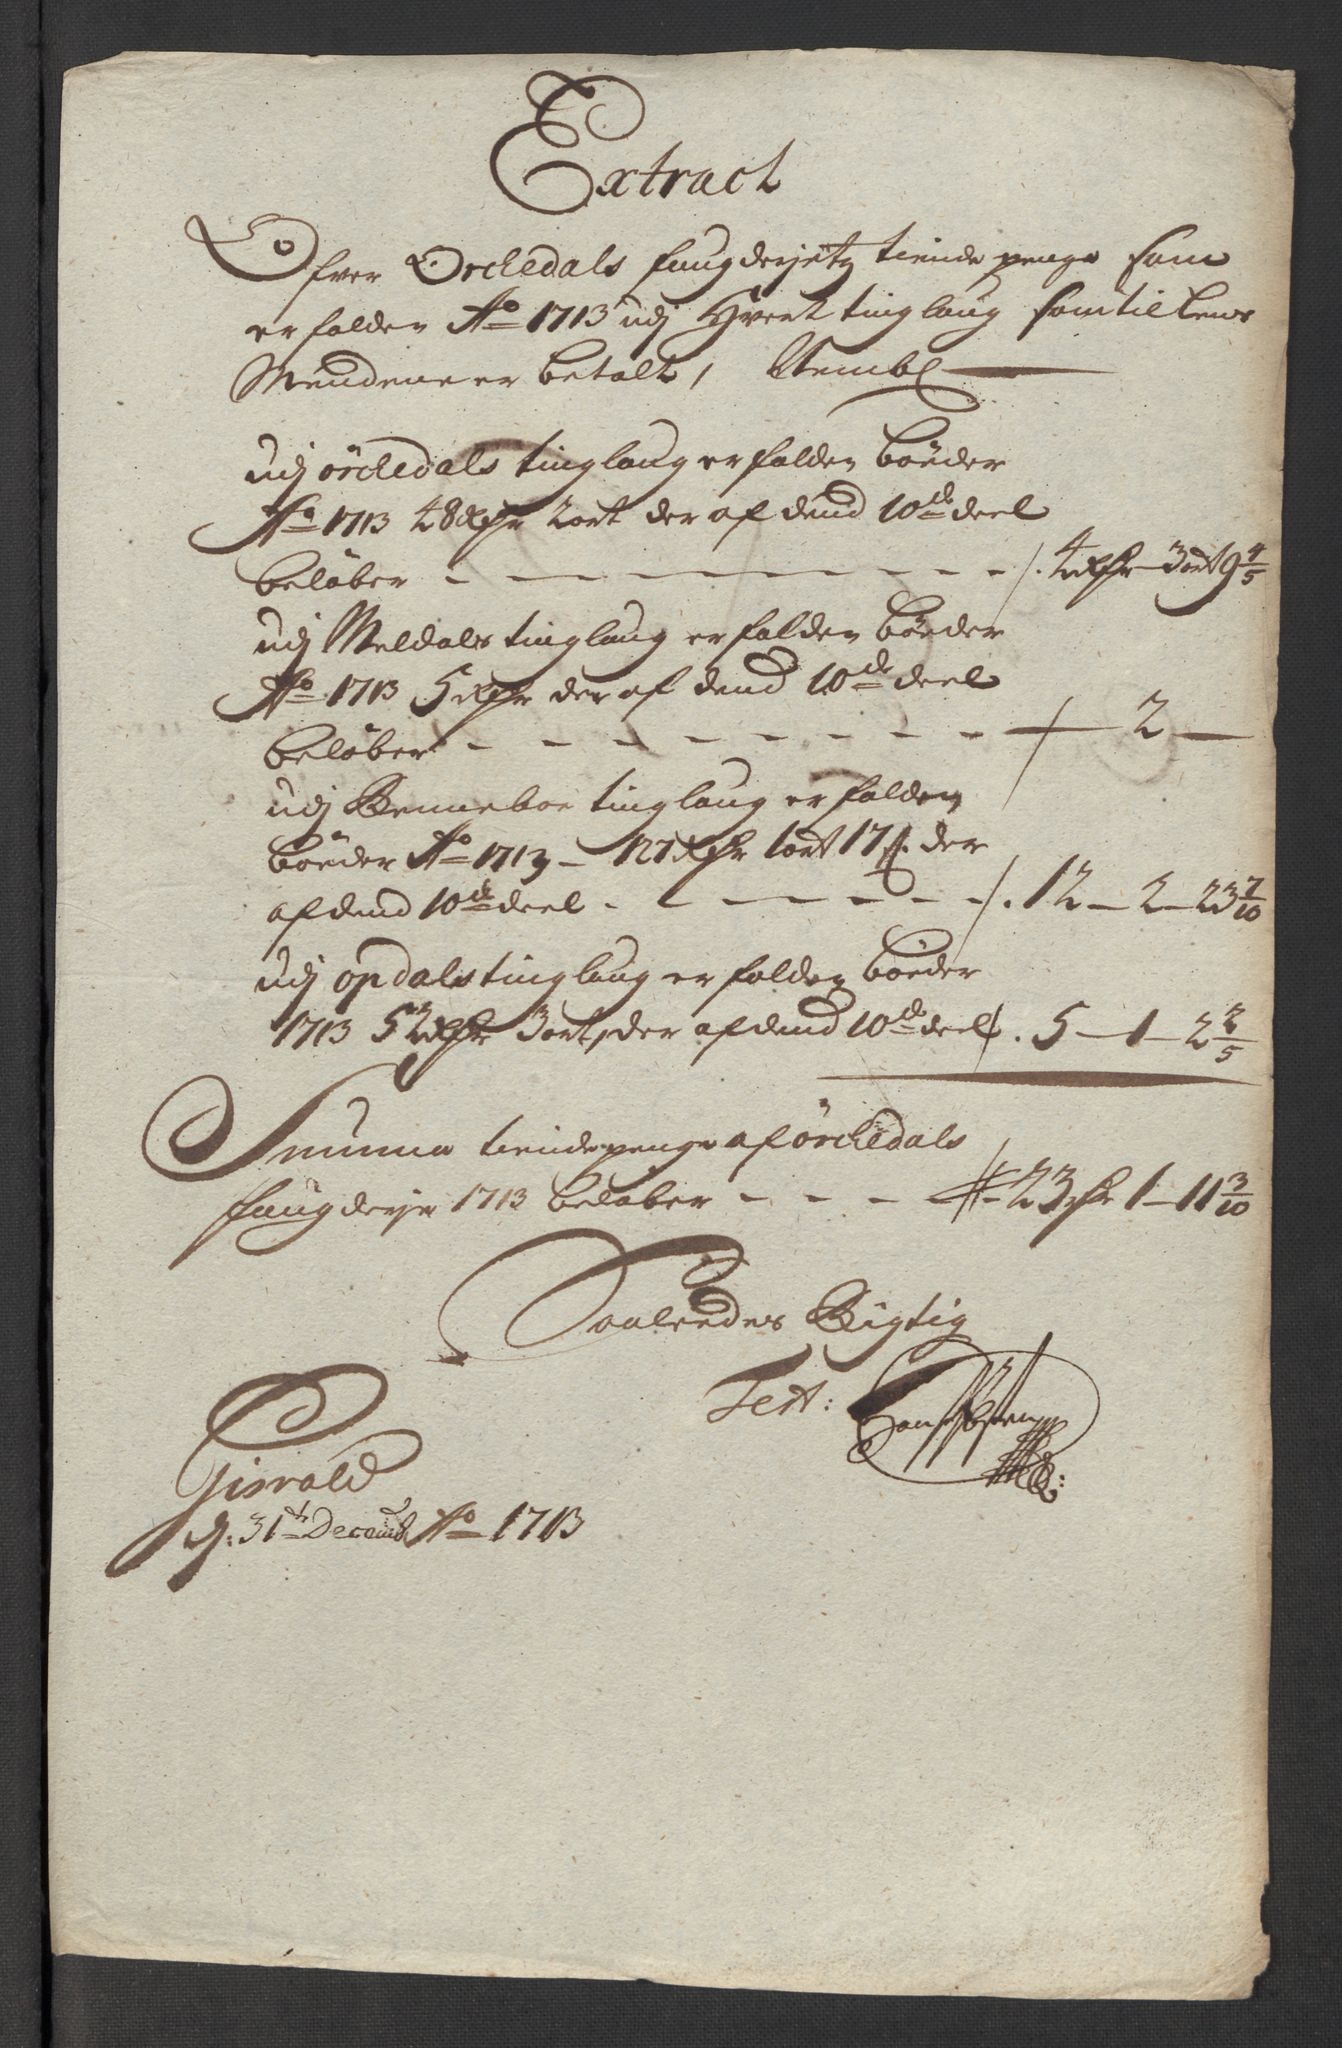 Extract
Ofver Orckedals faugderjetz tiende penge som
er falden Ao 1713 udj Hvert tinglaug som til Lens
Mendene er betalt, Nembl
udj örckedals tinglaug er falden böeder
Ao 1713 48 Rdr 2 ort der af dend 10de deel
belöber - - - - - - - - - /. 4 Rdr 3 ort 9 4/5
udj Meldals tinglaug er falden böeder
Ao 1713 5 Rdr der af dend 10de deel
belöber - - - - - - - - / — 2 —
udj Renneboe tinglaug er falden
böeder Ao 1713 - 127 Rdr 1 ort 17 s. der
af dend 10de deel - - - - - - /. 12 — 2 — 23 7/10
udj opdals tinglaug er falden böeder
1713 52 Rdr 3 ort, der af dend 10de deel /. 5 — 1 — 2 2/5
Summa tiende penge af örckedals
faugderje 1713 belöber - - - - 23 Rdr 1 — 11 3/10
Saaledes Rigtig
Test:
Gisvald
d: 31te Decemb Ao 1713